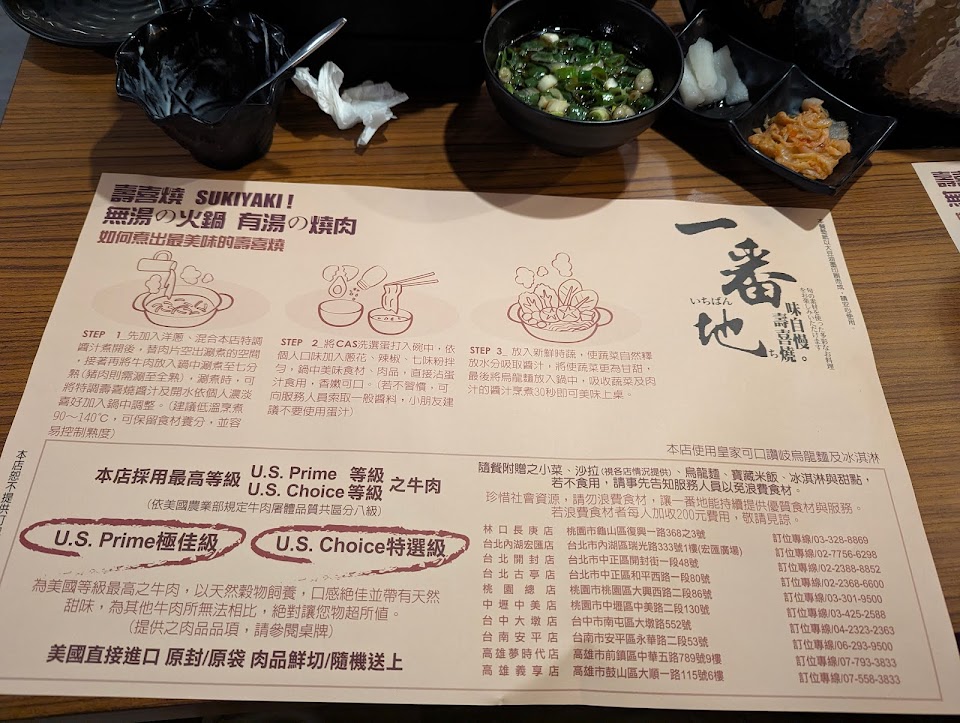 壽喜燒 SUKIYAKI！
無湯の火鍋 有湯の燒肉
如何煮出最美味的壽喜燒
STEP 1_先加入洋蔥、混合本店特調
醬汁煮開後，替肉片空出涮煮的空間
，接著再將牛肉放入鍋中涮煮至七分
熟(豬肉則需涮至全熟)，涮煮時，可
將特調壽喜燒醬汁及開水依個人濃淡
喜好加入鍋中調整。(建議低溫烹煮
90～140℃，可保留食材養分，並容
易控制熟度)
STEP 2_將CAS洗選蛋打入碗中，依
個人口味加入蔥花、辣椒、七味粉拌
勻，鍋中美味食材、肉品，直接沾蛋
汁食用，香嫩可口。(若不習慣，可
向服務人員索取一般醬料，小朋友建
議不要使用蛋汁)
STEP 3_放入新鮮時蔬，使蔬菜自然釋
放水分吸取醬汁，將使蔬菜更為甘甜，
最後將烏龍麵放入鍋中，吸收蔬菜及肉
汁的醬汁烹煮30秒即可美味上桌。
一番地
いちばんち
味自慢。
壽喜燒
本店使用皇家可口讚岐烏龍麵及冰淇淋
本店恕不提供打
本店採用最高等級 U.S. Prime 等級
U.S. Choice等級 之牛肉
(依美國農業部規定牛肉屠體品質共區分八級)
U.S. Prime極佳級
U.S. Choice特選級
為美國等級最高之牛肉，以天然穀物飼養，口感絕佳並帶有天然
甜味，為其他牛肉所無法相比，絕對讓您物超所值。
(提供之肉品品項，請參閱桌牌)
美國直接進口 原封/原袋 肉品鮮切/隨機送上
隨餐附贈之小菜、沙拉(視各店情況提供)、烏龍麵、寶藏米飯、冰淇淋與甜點，
若不食用，請事先告知服務人員以免浪費食材。
珍惜社會資源，請勿浪費食材，讓一番地能持續提供優質食材與服務。
若浪費食材者每人加收200元費用，敬請見諒。
林口長庚店 桃園市龜山區復興一路368之3號 訂位專線/03-328-8869
台北內湖宏匯店 台北市內湖區瑞光路333號1樓(宏匯廣場) 訂位專線/02-7756-6298
台北開封店 台北市中正區開封街一段48號 訂位專線/02-2388-8852
台北古亭店 台北市中正區和平西路一段80號 訂位專線/02-2368-6600
桃園總店 桃園市桃園區大興西路二段86號 訂位專線/03-301-9500
中壢中美店 桃園市中壢區中美路二段130號 訂位專線/03-425-2588
台中大墩店 台中市南屯區大墩路552號 訂位專線/04-2323-2363
台南安平店 台南市安平區永華路二段53號 訂位專線/06-293-9500
高雄夢時代店 高雄市前鎮區中華五路789號9樓 訂位專線/07-793-3833
高雄義享店 高雄市鼓山區大順一路115號6樓 訂位專線/07-558-3833